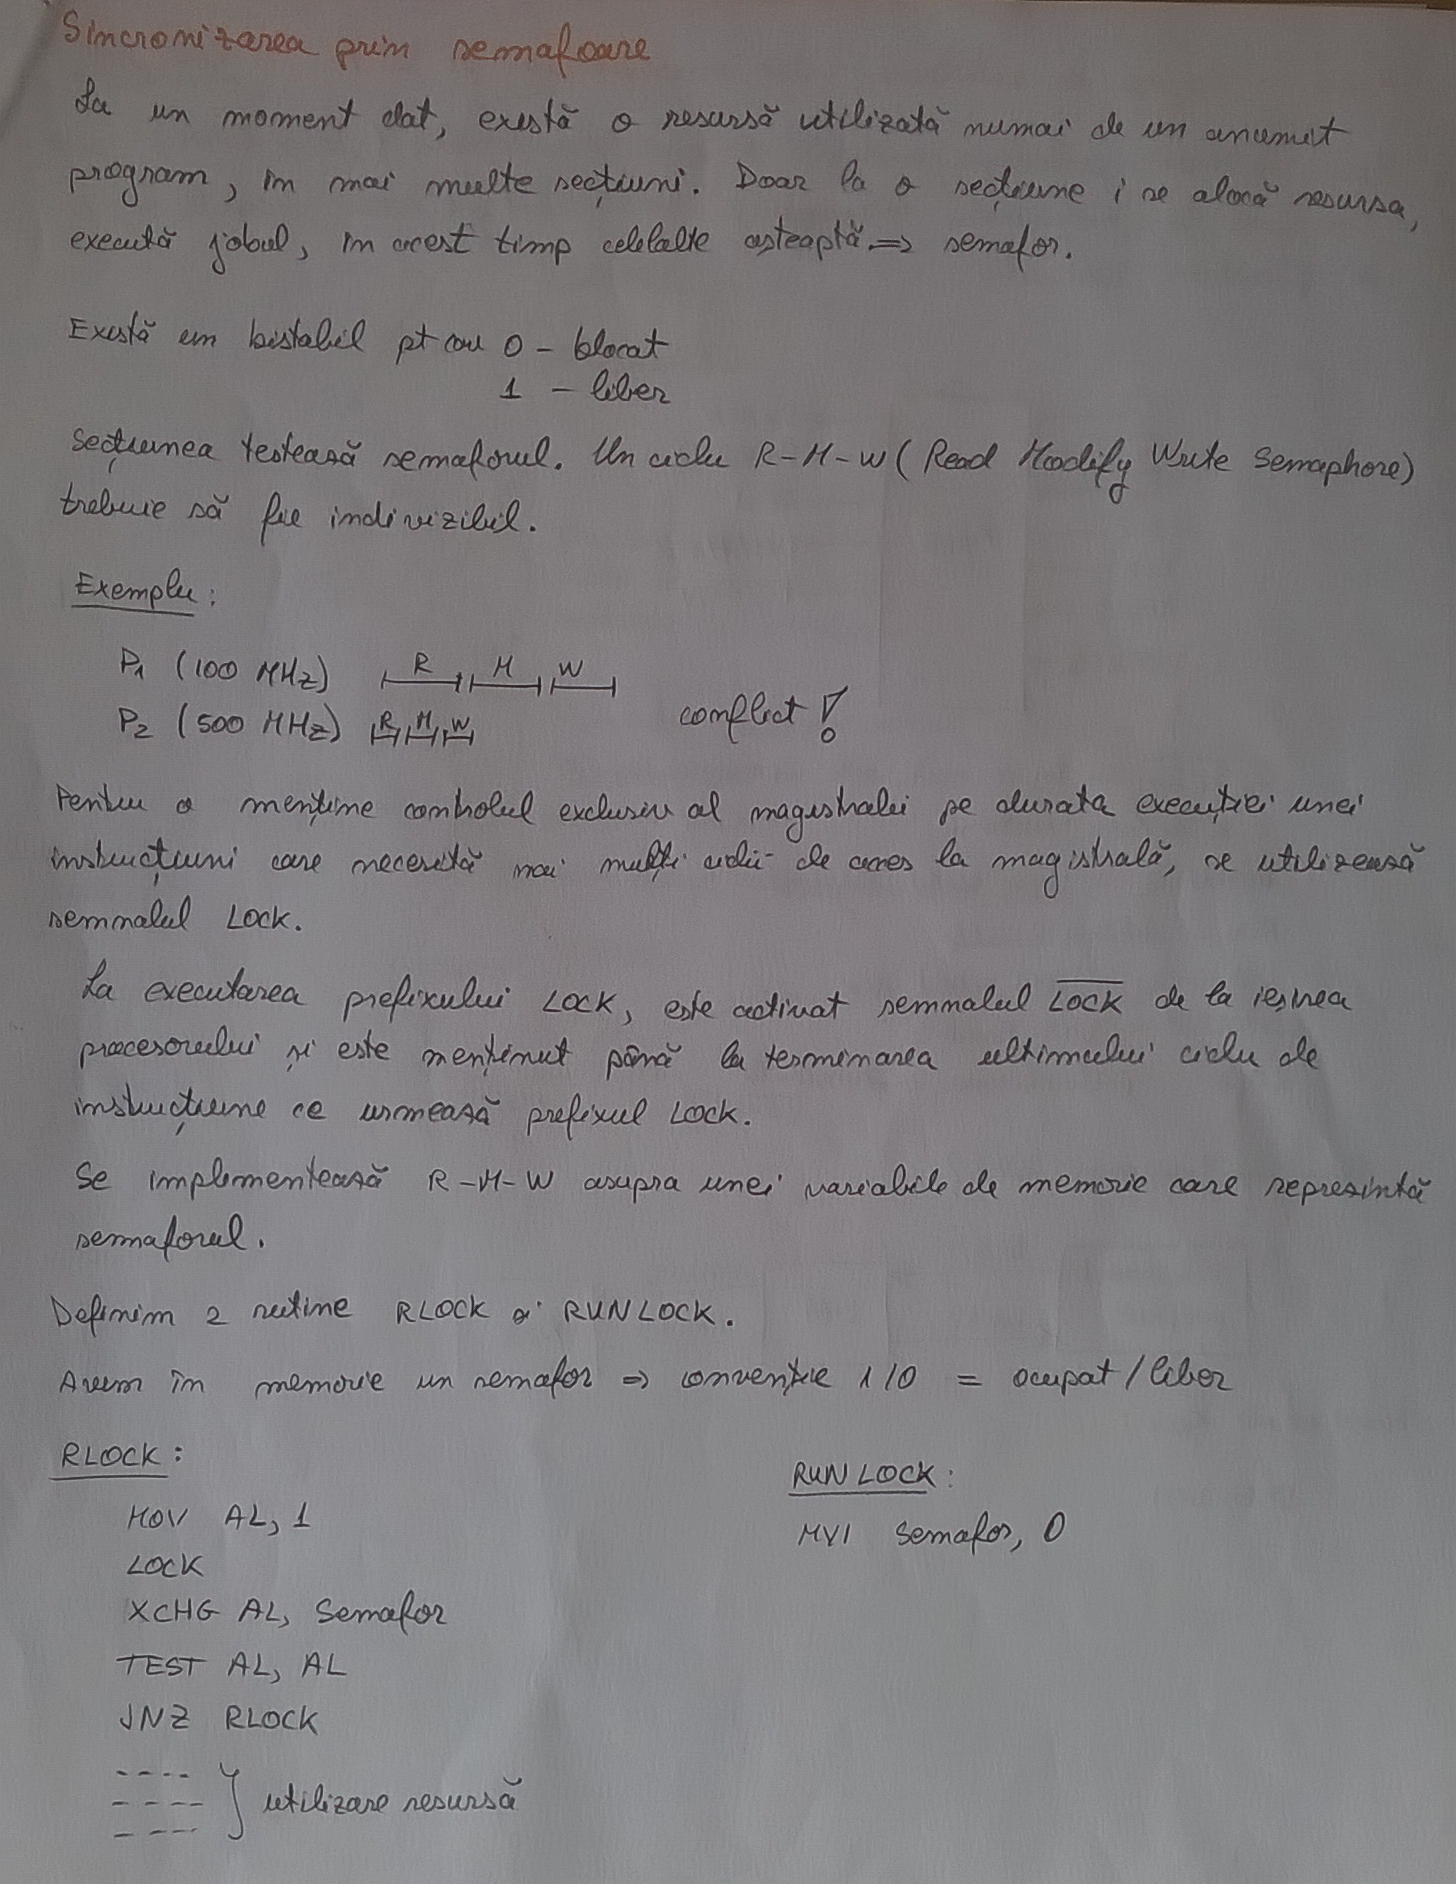 Sincronizarea prin semafoare
La un moment dat, există o resursă utilizată numai de un anumit
program, în mai multe secțiuni. Doar la o secțiune i se alocă resursa,
execută jobul, în acest timp celelalte așteaptă. => semafor.
Există un bistabil pt cu 0 - blocat
1 - liber
Secțiunea testează semaforul. Un ciclu R-M-W (Read Modify Write Semaphore)
trebuie să fie indivizibil.
Exemplu:
P1 (100 MHz) R M W
P2 (500 MHz) R M W conflict !
Pentru a menține controlul exclusiv al magistralei pe durata execuției unei
instrucțiuni care necesită mai multe cicli de acces la magistrală, se utilizează
semnalul LOCK.
La executarea prefixului LOCK, este activat semnalul L̅O̅C̅K̅ de la ieșirea
procesorului și este menținut până la terminarea ultimului ciclu de
instrucțiune ce urmează prefixul LOCK.
Se implementează R-M-W asupra unei variabile de memorie care reprezintă
semaforul.
Definim 2 rutine RLOCK și RUNLOCK.
Avem în memorie un semafor => convenție 1/0 = ocupat/liber
RLOCK:
MOV AL, 1
LOCK
XCHG AL, Semafor
TEST AL, AL
JNZ RLOCK
---- } utilizare resursă
RUNLOCK:
MVI Semafor, 0